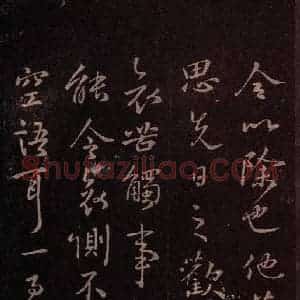 以除也他
思先日之歡
苦觸事
能令哀惻不
空語耳一
Shufaziliao.COM